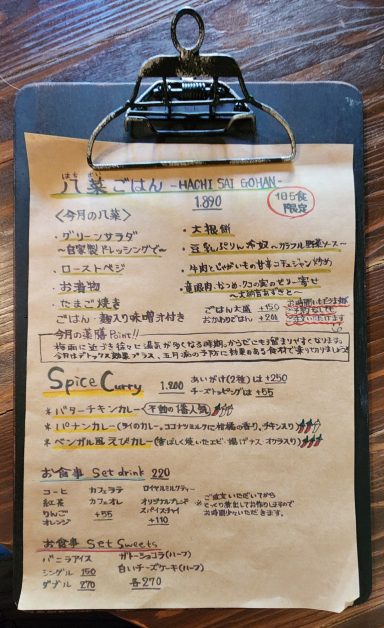 はち さい
八菜ごはん -HACHI SAI GOHAN-
1,890
1日5食限定
〈今月の八菜〉
・グリーンサラダ
〜自家製ドレッシングで〜
・ローストベジ
・お煮物
・たまご焼き
・ごはん・麹入り味噌汁付き
・大根餅
・豆乳ぷりん冷奴〜カラフル野菜ソース〜
・牛肉とじゃがいもの甘辛コチュジャン炒め
・竜眼肉・なつめ・クコの実のゼリー寄せ
〜大納言あずきと〜
ごはん大盛 +150
おかわりごはん +200
今月の薬膳Point!!
梅雨に近づき徐々に湿気が多くなる時期。からだにも溜まりやすくなります。
今月はデトックス効果プラス、五月病の予防にも効果のある食材で乗り切りましょう!
Spice Curry 1,200
あいがけ(2種)は +250
チーズトッピングは +55
＊バターチキンカレー(不動の1番人気)
＊パナンカレー(タイのカレー。ココナツミルクに柑橘の香り。チキン入り)
＊ベンガル風えびカレー(香ばしく焼いたエビ・揚げナス・オクラ入り)
お食事 Set drink 220
コーヒー
紅茶
りんご
オレンジ
カフェラテ
カフェオレ
+55
ロイヤルミルクティー
オリジナルブレンド
スパイスチャイ
+110
＊ご注文いただいてから
じっくり煮出してお作りしますので
お時間少々いただきます。
お食事 Set Sweets
バニラアイス
シングル 150
ダブル 270
ガトーショコラ(ハーフ)
白いチーズケーキ(ハーフ)
各270